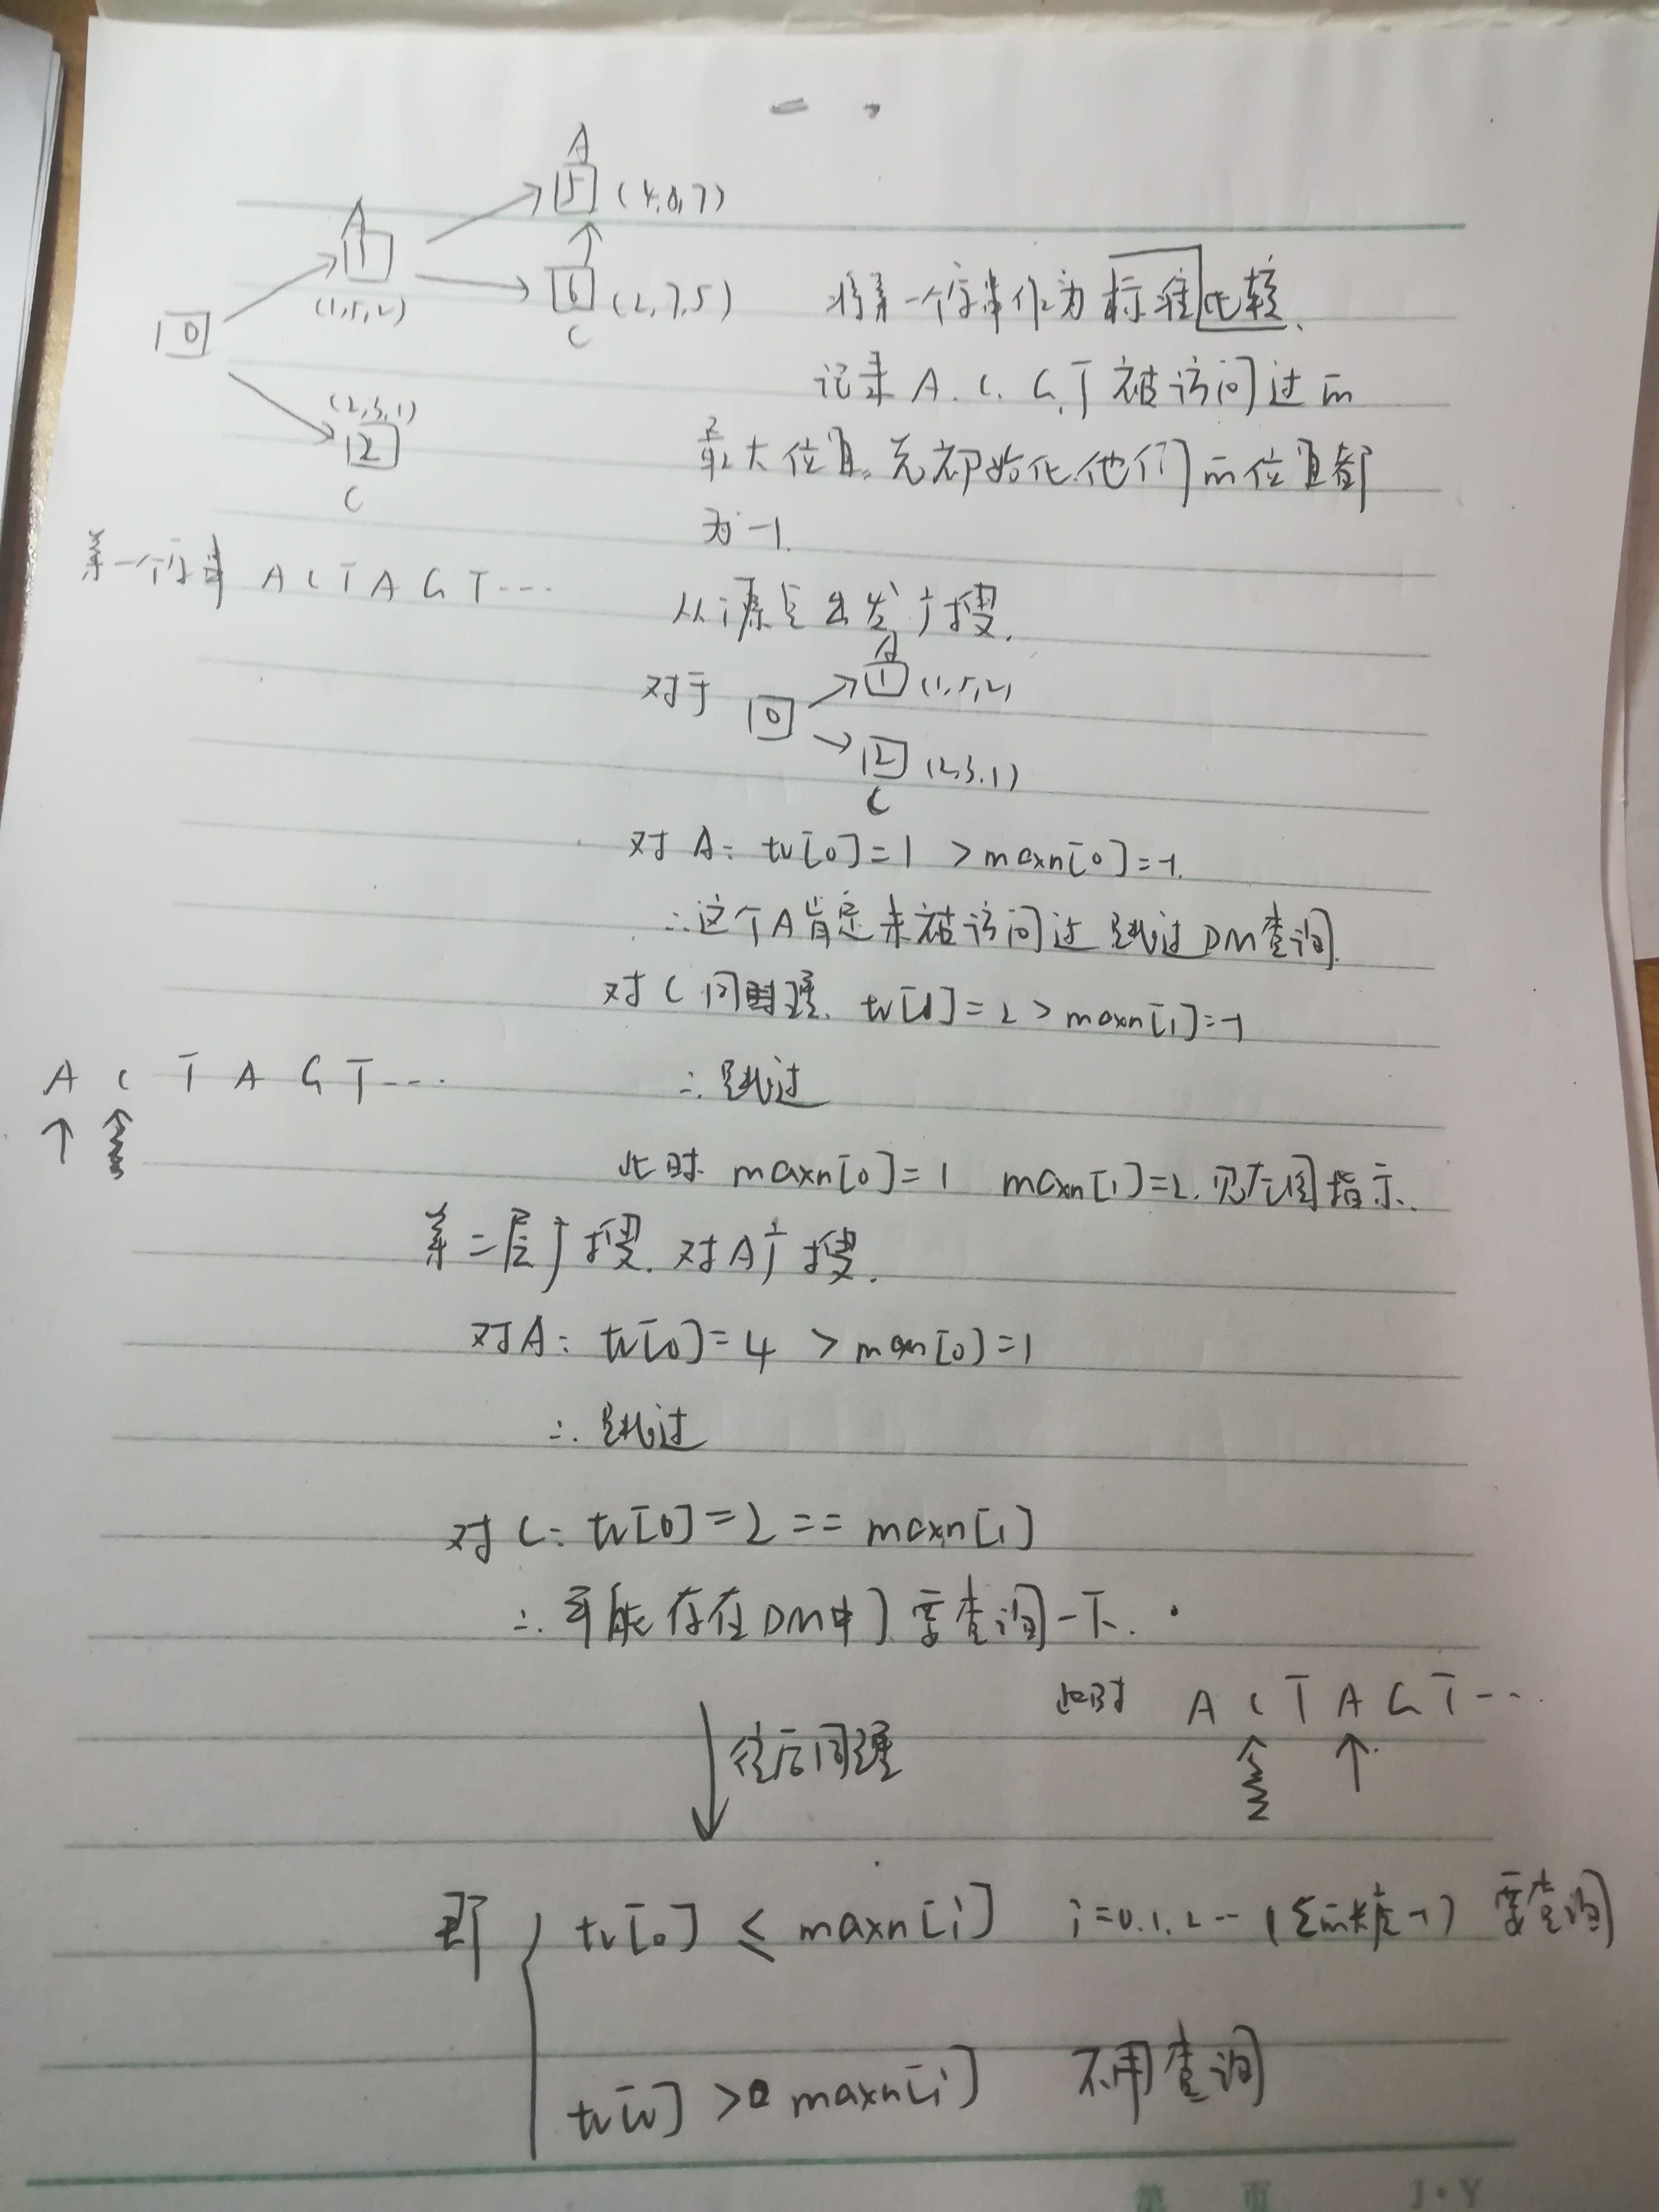 A
5 (4,0,7)
A
1
(1,5,2)
6 (2,7,5)
C
0
(2,3,1)
2
C
将第一个字串作为标准比较.
记录 A. C. G. T 被访问过的
最大位置。先初始化他们的位置都
为 -1.
第一个字串 A C T A G T ...
从源点出发广搜.
对于 0
A
1 (1,5,2)
2 (2,3,1)
C
对 A: tv[0]=1 > maxn[0]=-1.
∴这个A肯定未被访问过 跳过DM查询.
对 C 同理. tv[0]=2 > maxn[1]=-1
A C T A G T ...
∴ 跳过
此时 maxn[0]=1 maxn[1]=2. 见左图指示.
第二层广搜. 对A广搜.
对A: tv[0]=4 > maxn[0]=1
∴ 跳过
对 C: tv[0]=2 == maxn[1]
∴ 可能存在DM中 需查询一下.
此时 A C T A G T ...
往后同理
即 tv[0] ≤ maxn[i] i=0.1.2 ... (Σ的长度-1) 需查询
tv[0] > maxn[i] 不用查询
第 页 J·Y